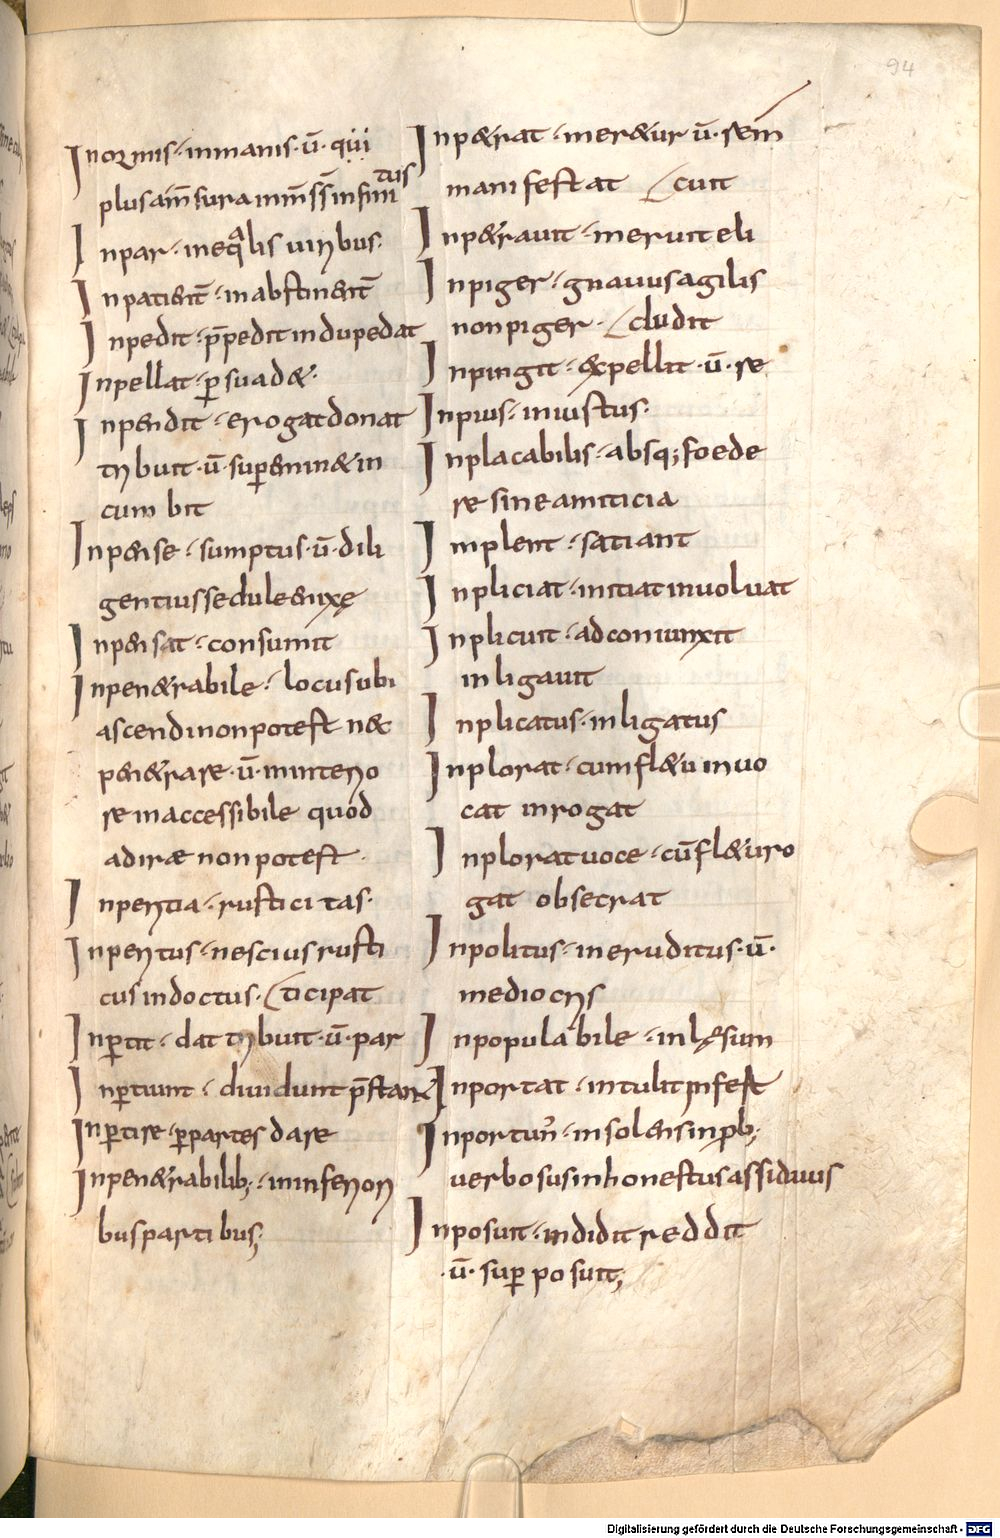 94
Inormis · inmanis · ū · qui
tus
plus am̄sura inm̄ss̄ infini
Inpar · ineq̄lis uiribus ·
Inpatient̄ · inabstinent̄
Inpedit · p̄pedit indupedat
Inpellat · ꝑsuad& ·
Inpendit · erogat donat
tribuit · ū · suꝑemin& in
cumbit
Inpense · sumptus · ū · dili
gentius sedule enixę
Inpensat · consumit
Inpen&rabile · locus ubi
ascendi non potest n&
pen&rare · ū · in interio
re inaccessibile quod
adiræ non potest ·
Inperitia · rusticitas ·
Inperitus · nescius rusti
cus indoctus · ticipat
Inꝑtit · dat tribuit · ū · par
Inꝑtiunt · diuidunt p̄stant
Inꝑtire · ꝑpartes dare
Inpen&rabilib; · in inferiori
bus partibus;
Inp&rat · mer&ur ū · sem̄
manifestat cuit
Inp&rauit · meruit eli
Inpiger · gnauus agilis
non piger · cludit
Inpingit · &pellit · ū · re
Inpius · iniustus ·
Inplacabilis · absq; foede
re sine amiticia
Inplent · satiant
Inpliciat · initiat inuoluat
Inplicuit · adconiunxit
inligauit
Inplicatus · inligatus
Inplorat · cum fl&u inuo
cat inrogat
Inplorat uoce · cū fl&u ro
gat obsecrat
Inpolitus · ineruditus · ū ·
mediocris
Inpopulabile · inlęsum
Inportat · intulit infest
Inportun̄ · insolens inprob;
uerbosus inhonestus assiduus
Inposuit · indidit reddit
· ū · suꝑposuit;
Digitalisierung gefördert durch die Deutsche Forschungsgemeinschaft - DFG